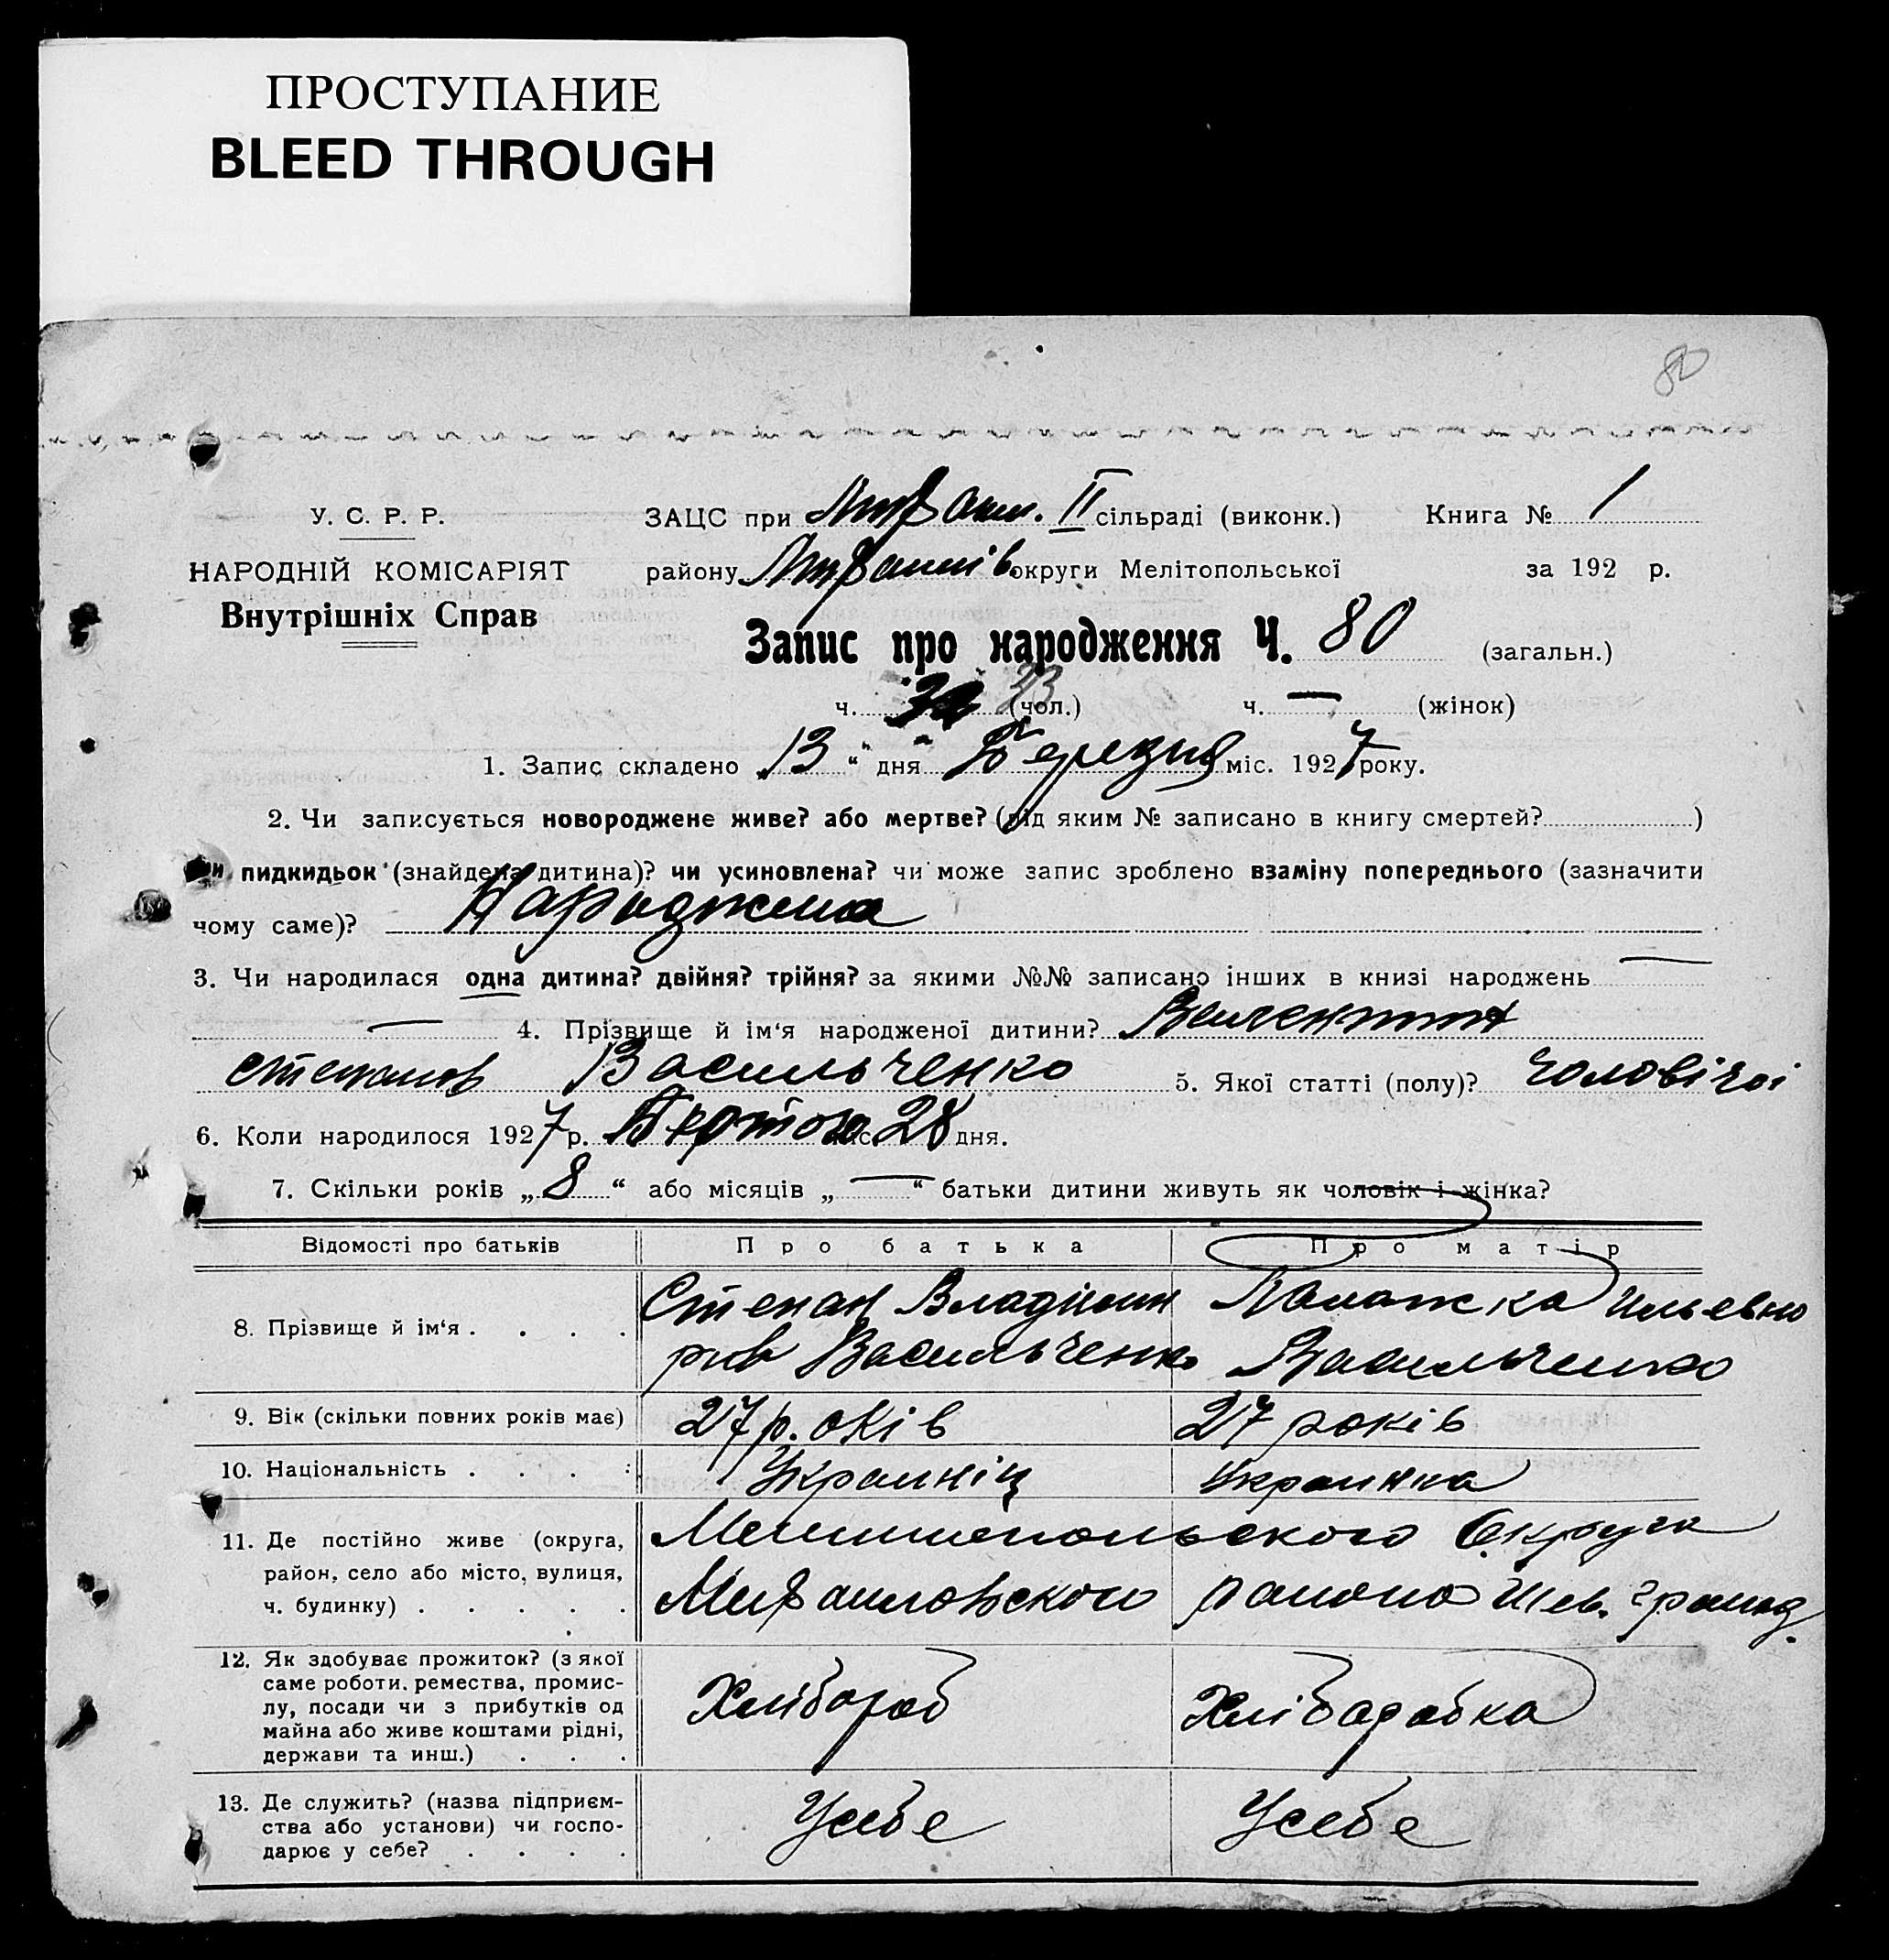 ПРОСТУПАНИЕ
BLEED THROUGH
80
У. С. Р. Р.
ЗАЦС при II сільраді (виконк.) Книга № 1
НАРОДНІЙ КОМІСАРІЯТ
району округи Мелітопольської за 192 р.
Внутрішніх Справ
Запис про народження Ч. 80 (загальн.)
ч. 33 (чол.) ч. — (жінок)
1. Запис складено „13“ дня Березня міс. 1927 року.
2. Чи записується новороджене живе? або мертве? (під яким № записано в книгу смертей? )
чи пидкидьок (знайдена дитина)? чи усиновлена? чи може запис зроблено взаміну попереднього (зазначити
чому саме)? Народжена
3. Чи народилася одна дитина? двійня? трійня? за якими №№ записано інших в книзі народжень —
— 4. Прізвище й ім‘я народженої дитини? Валентин
степанов Васильченко 5. Якої статті (полу)? чоловічої
6. Коли народилося 1927 р. Лютого міс. 28 дня.
7. Скільки років „ 8 “ або місяців „ — “ батьки дитини живуть як чоловік і жінка?
Відомості про батьків Про батька Про матір
8. Прізвище й ім‘я . . . .
Степан Владіми Палажка Ильевна
ров Васильченко Васильченко
9. Вік (скільки повних років має) 27 років 27 років
10. Національність . . . . Украинец Украинка
11. Де постійно живе (округа,
район, село або місто, вулиця,
ч. будинку) . . . . .
Мелитопольского Округа
Михаиловского района Шев. громад.
12. Як здобуває прожиток? (з якої
саме роботи, ремества, промис-
лу, посади чи з прибутків од
майна або живе коштами рідні,
держави та инш.) . . .
Хлібороб Хліборобка
13. Де служить? (назва підприєм-
ства або установи) чи госпо-
дарює у себе? . . . .
Усебе Усебе